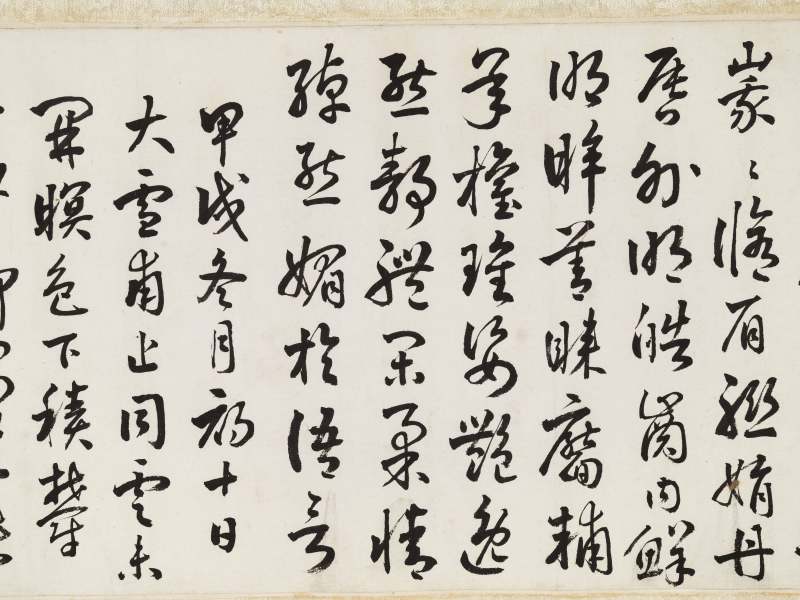 峩〻脩眉聯娟丹
唇外朗皓齒內鮮
明眸善睞靨輔
承權瓌姿艷逸
態靜體閑柔情
綽態媚於語言
甲戌冬月初十日
大雪甫止同雲未
開暝色下積